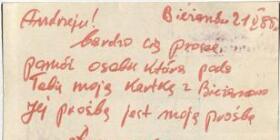 Andrzeju! Bieżanów 21 V 86
bardzo cię proszę
pomóż osobie która poda
Tobie moją kartkę z Bieżanowa
Jej prośba jest moją prośbą